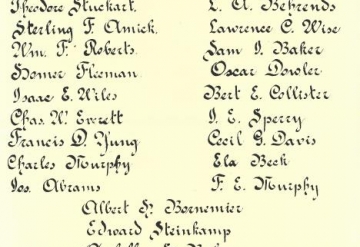 Theodore Stuckart.
Sterling F. Amick.
Wm. F. Roberts.
Homer Fleeman.
Isaac E. Wiles
Chas. W. Everett
Francis D. Yung
Charles Murphy
Jos. Abrams
L. A. Behrends
Lawrence C. Wise
Sam I. Baker
Oscar Dowler
Bert E. Collister
I. E. Sperry
Cecil G. Davis
Ela Beck
F. E. Murphy
Albert H. Bornemier
Edward Steinkamp